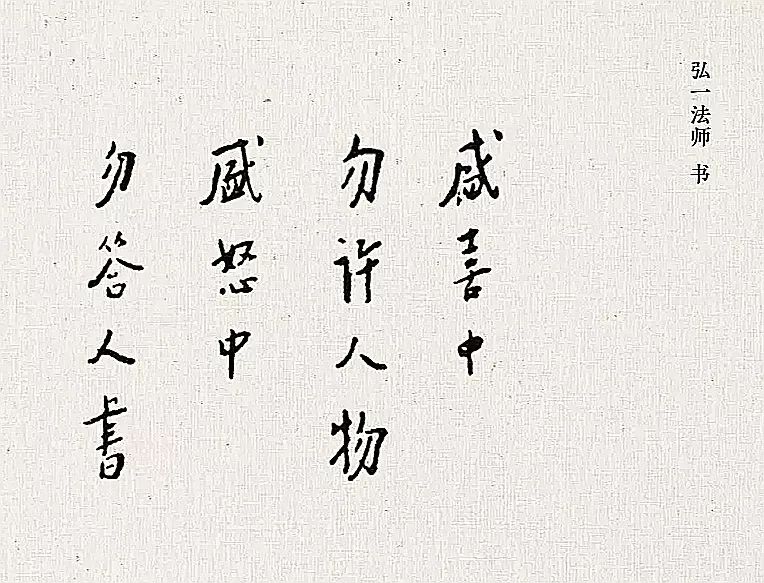 弘一法师 书
盛喜中
勿许人物
盛怒中
勿答人書